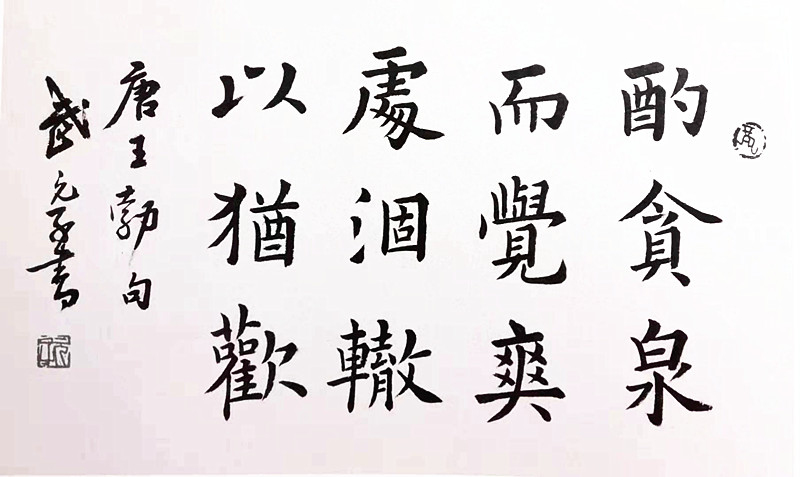 酌貪泉
而覺爽
處涸轍
以猶歡
唐王勃句
武元子書